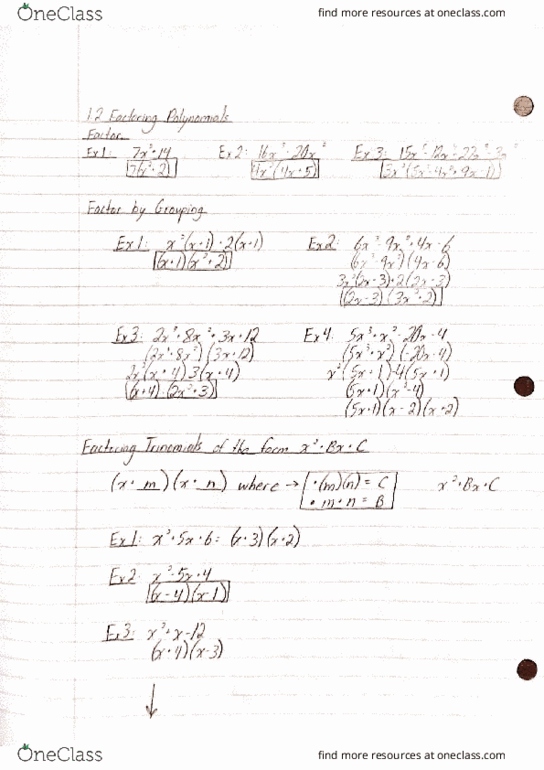 OneClass
find more resources at oneclass.com
1.2 Factoring Polynomials
Factor
Ex 1: 7x² + 14
Ex 2: 16x³ + 20x²
Ex 3:
7(x² + 2)
4x²(4x + 5)
Factor by Grouping
Ex 1: x²(x+1) + 2(x+1)
Ex 2: 6x³ - 9x² + 4x - 6
(x+1)(x²+2)
(6x³ - 9x²)(4x - 6)
3x²(2x-3) + 2(2x-3)
(2x-3)(3x²+2)
Ex 3: 2x³ + 8x² + 3x + 12
Ex 4: 5x³ + x² - 20x - 4
(2x³ + 8x²)(3x + 12)
(5x³ + x²)(-20x - 4)
2x²(x+4) 3(x+4)
x²(5x+1) -4(5x+1)
(x+4)(2x²+3)
(5x+1)(x²-4)
(5x+1)(x-2)(x+2)
Factoring Trinomials of the form x² + Bx + C
(x + m)(x + n) where → • (m)(n) = C
x² + Bx + C
• m + n = B
Ex 1: x² + 5x + 6 = (x+3)(x+2)
Ex 2: x² - 5x + 4
(x-4)(x-1)
Ex 3: x² + x - 12
(x+4)(x-3)
OneClass
find more resources at oneclass.com